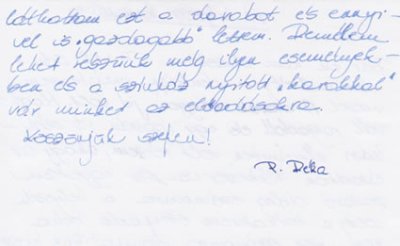 láthattam ezt a darabot és ennyi-
vel is „gazdagabb" lettem. Remélem
lehet részünk még ilyen események-
ben és a színház nyitott „karokkal"
vár minket az előadásokra.
Köszönjük szépen!
P. Réka